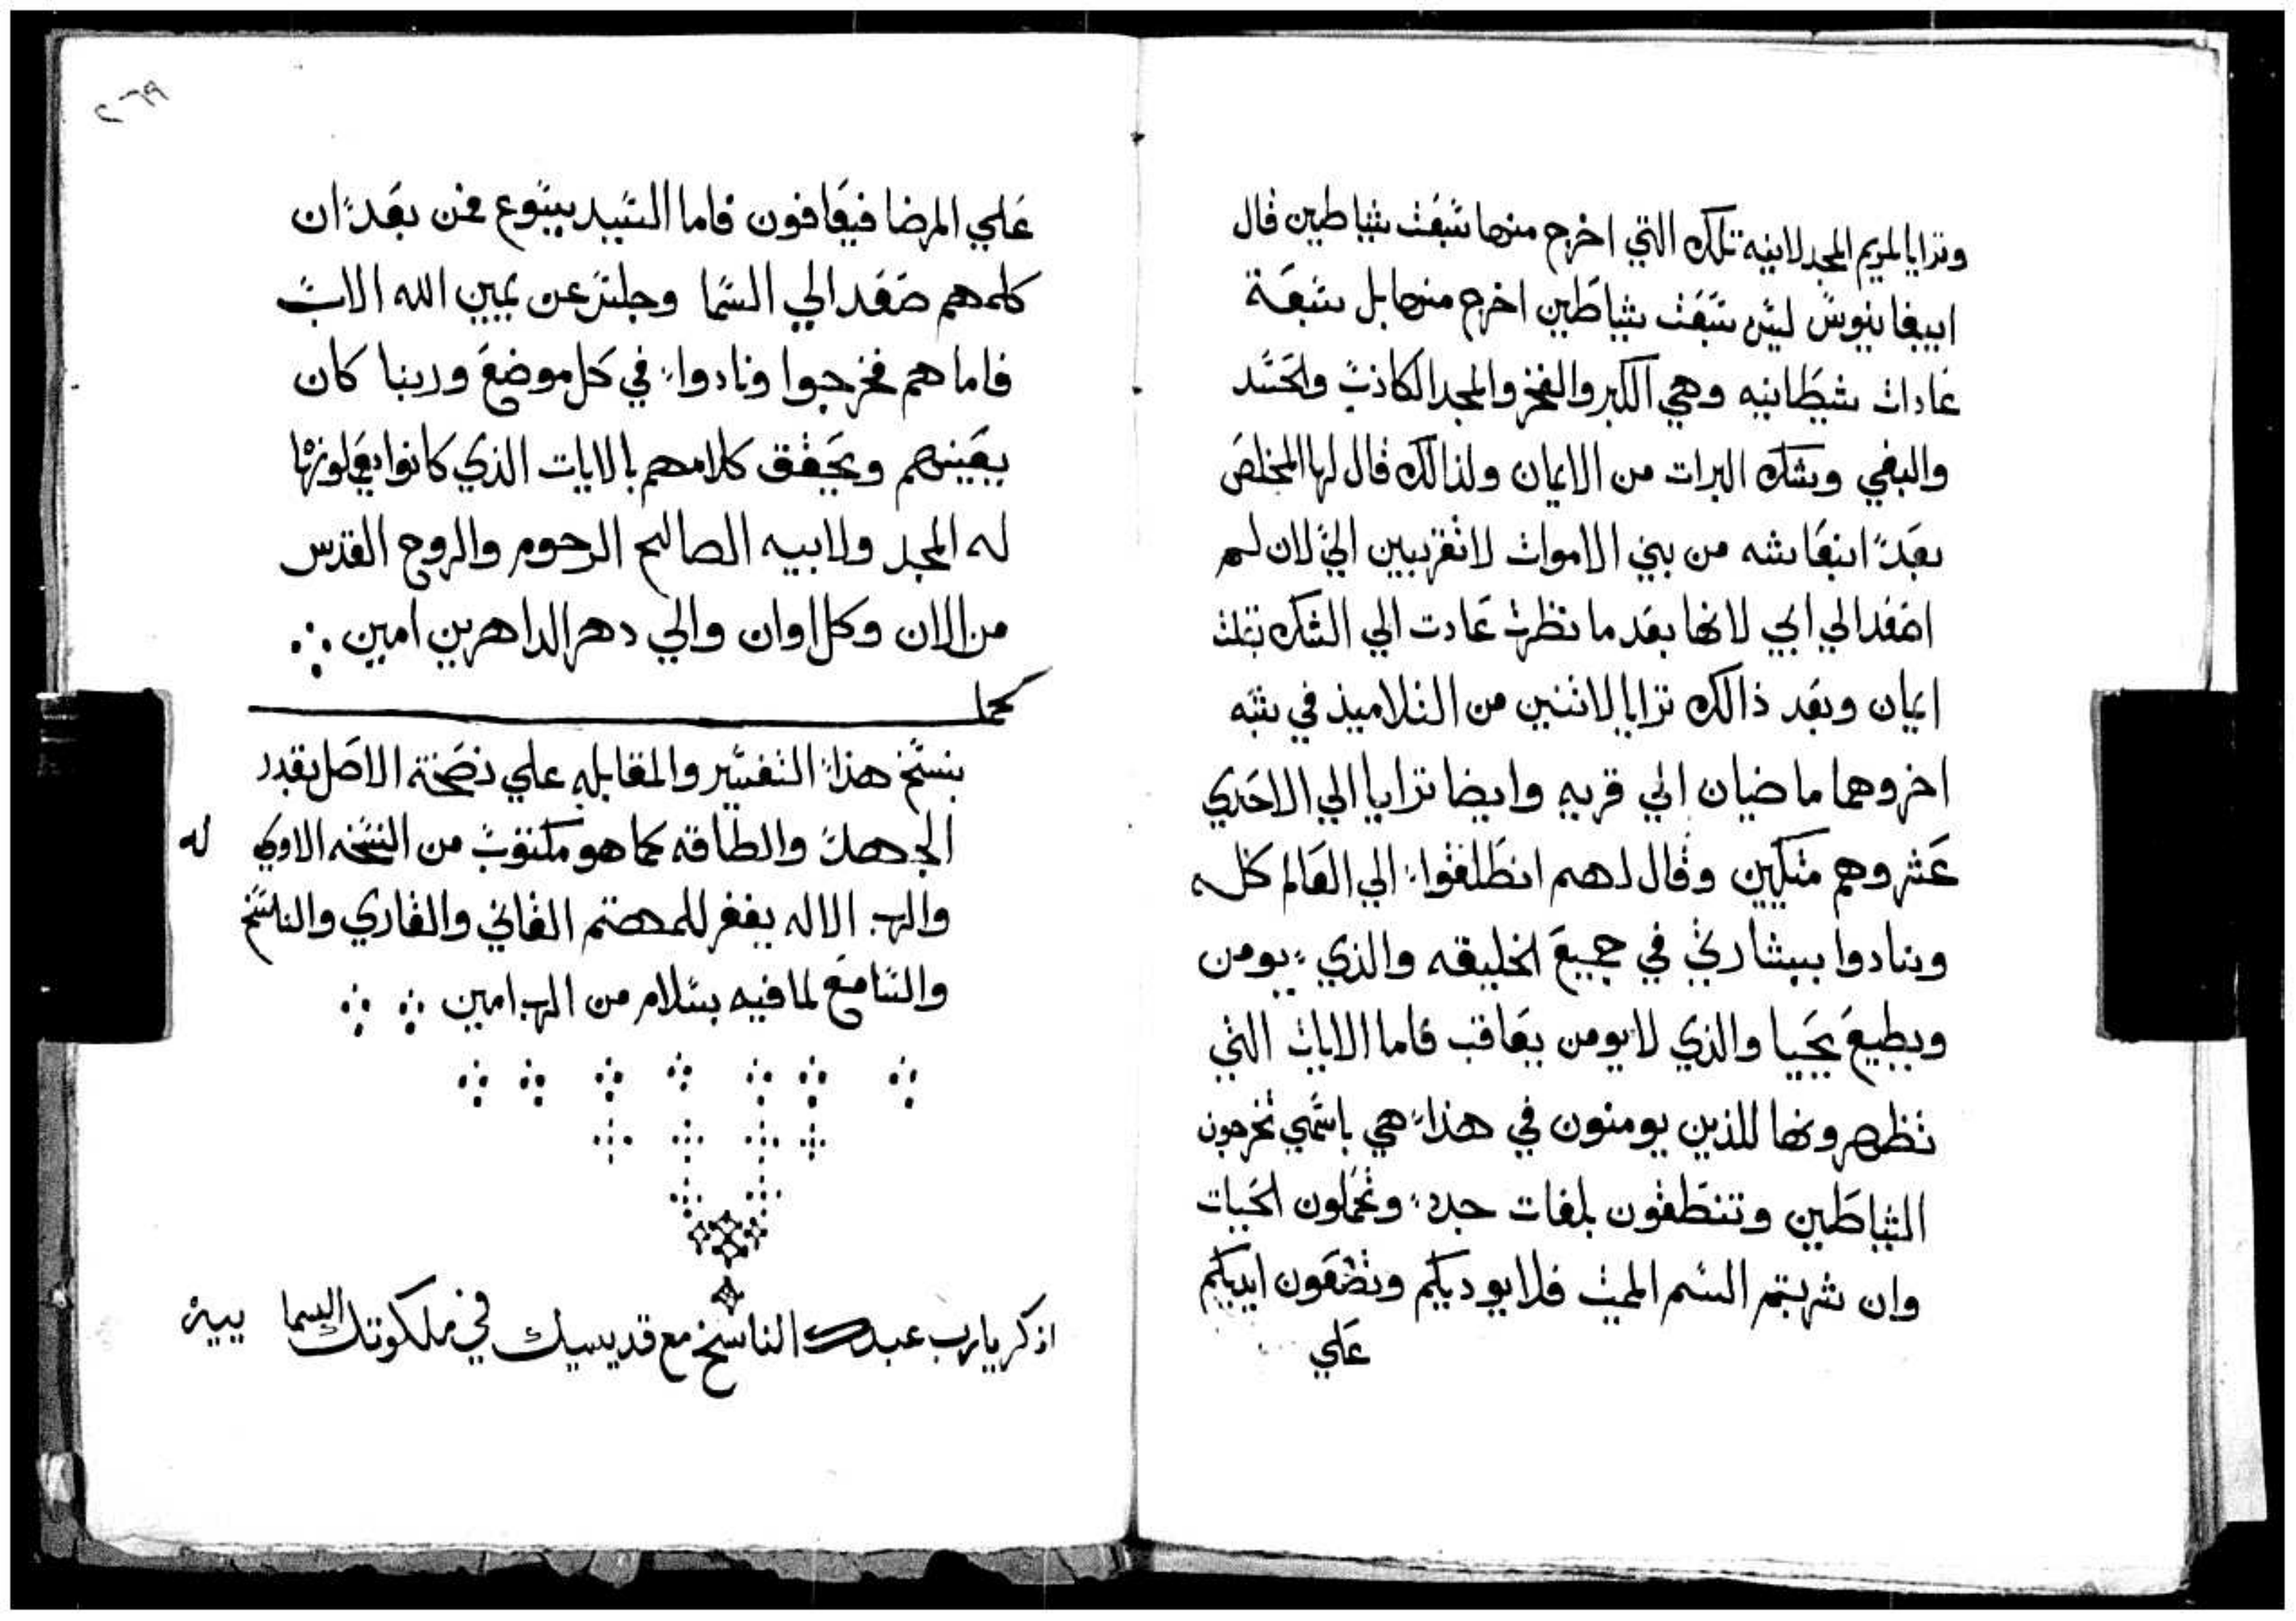 وترايا لمريم المجدلانيه تلك التي اخرج منها سبعت شياطين قال
ابيفانيوس ليس سبعت شياطين اخرج منها بل سبعة
عادات شيطانيه وهي الكبر والفخر والمجد الكاذب والحسد
والبغي وشك البرات من الايمان ولذالك قال لها المخلص
بعد انبعاثه من بين الاموات لا تقربين الي لان لم
اصعد الي ابي لانها بعد ما نظرت عادت الي الشك بتلت
ايمان وبعد ذالك ترايا لاتنين من التلاميذ في شبه
اخر وهما ماضيان الي قريه وايضا ترايا الي الاحدي
عشر وهم متكيين وقال لهم انطلقوا الي العالم كله
ونادوا ببشارتي في جميع الخليقه والذي يومن
ويطيع يحيا والذي لا يومن يعاقب فاما الايات التي
تظهرونها للذين يومنون في هذا هي باسمي تخرجون
الشياطين وتنطقون بلغات جدد وتحملون الحيات
وان شربتم السم المميت فلا يوديكم وتضعون ايديكم
علي
٢٦٩
علي المرضا فيعافون فاما السيد يسوع فمن بعد ان
كلمهم صعد الي السما وجلس عن يمين الله الاب
فاما هم فخرجوا ونادوا في كل موضع وربنا كان
يعينهم ويحقق كلامهم بالايات الذي كانوا يعملونها
له المجد ولابيه الصالح الرحوم والروح القدس
من الان وكل اوان والي دهر الداهرين امين
كمل
بنسخ هذا التفسير والمقابله علي نصخة الاصل بقدر
الجهد والطاقه كما هو مكتوب من النسخه الاولي له
والرب الاله يغفر للمهتم الفاني والقاري والناسخ
والسامع لما فيه بسلام من الرب امين
اذكر يا رب عبدك الناسخ مع قديسيك في ملكوتك السما ييه